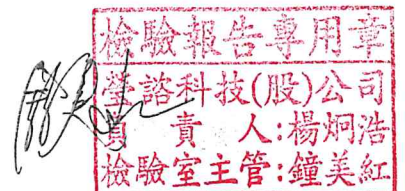 檢驗報告專用章
謍諮科技(股)公司
負責人:楊炯浩
檢驗室主管:鐘美紅